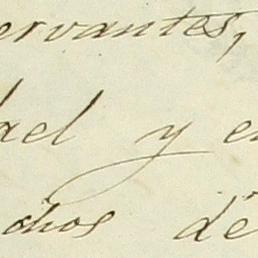 ervantes,
ael y e
chos de